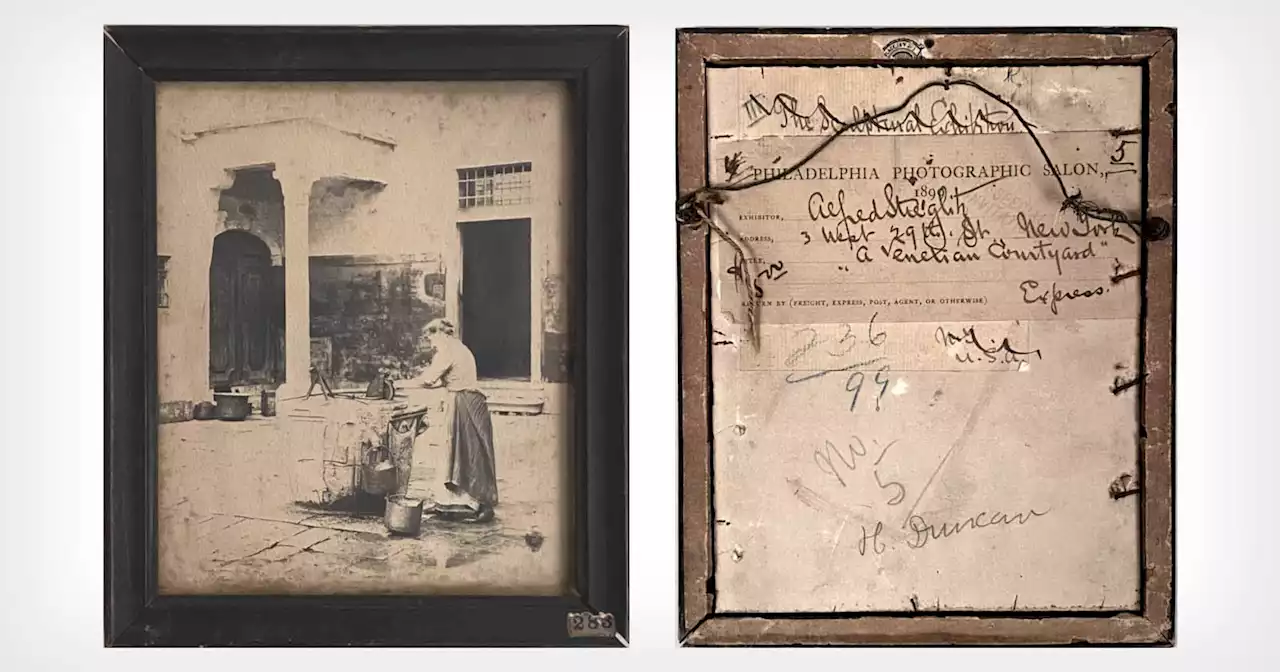 286
The Sculptural Exhibition
5
PHILADELPHIA PHOTOGRAPHIC SALON,
189
EXHIBITOR, Alfred Stieglitz
ADDRESS, 3 West 29th. St New York
"A Venetian Courtyard"
5
00
RETURN BY (FREIGHT, EXPRESS, POST, AGENT, OR OTHERWISE) Express.
236
U.S.A.
99
No.
5
H. Duncan